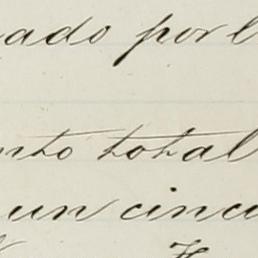 ado por l
nto total
un cinco